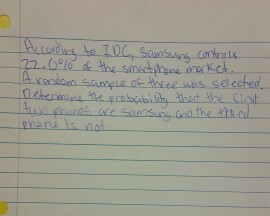 According to IDC, Samsung controls
22.0% of the smartphone market.
A random sample of three was selected.
Determine the probability that the first
two phones are Samsung and the third
phone is not